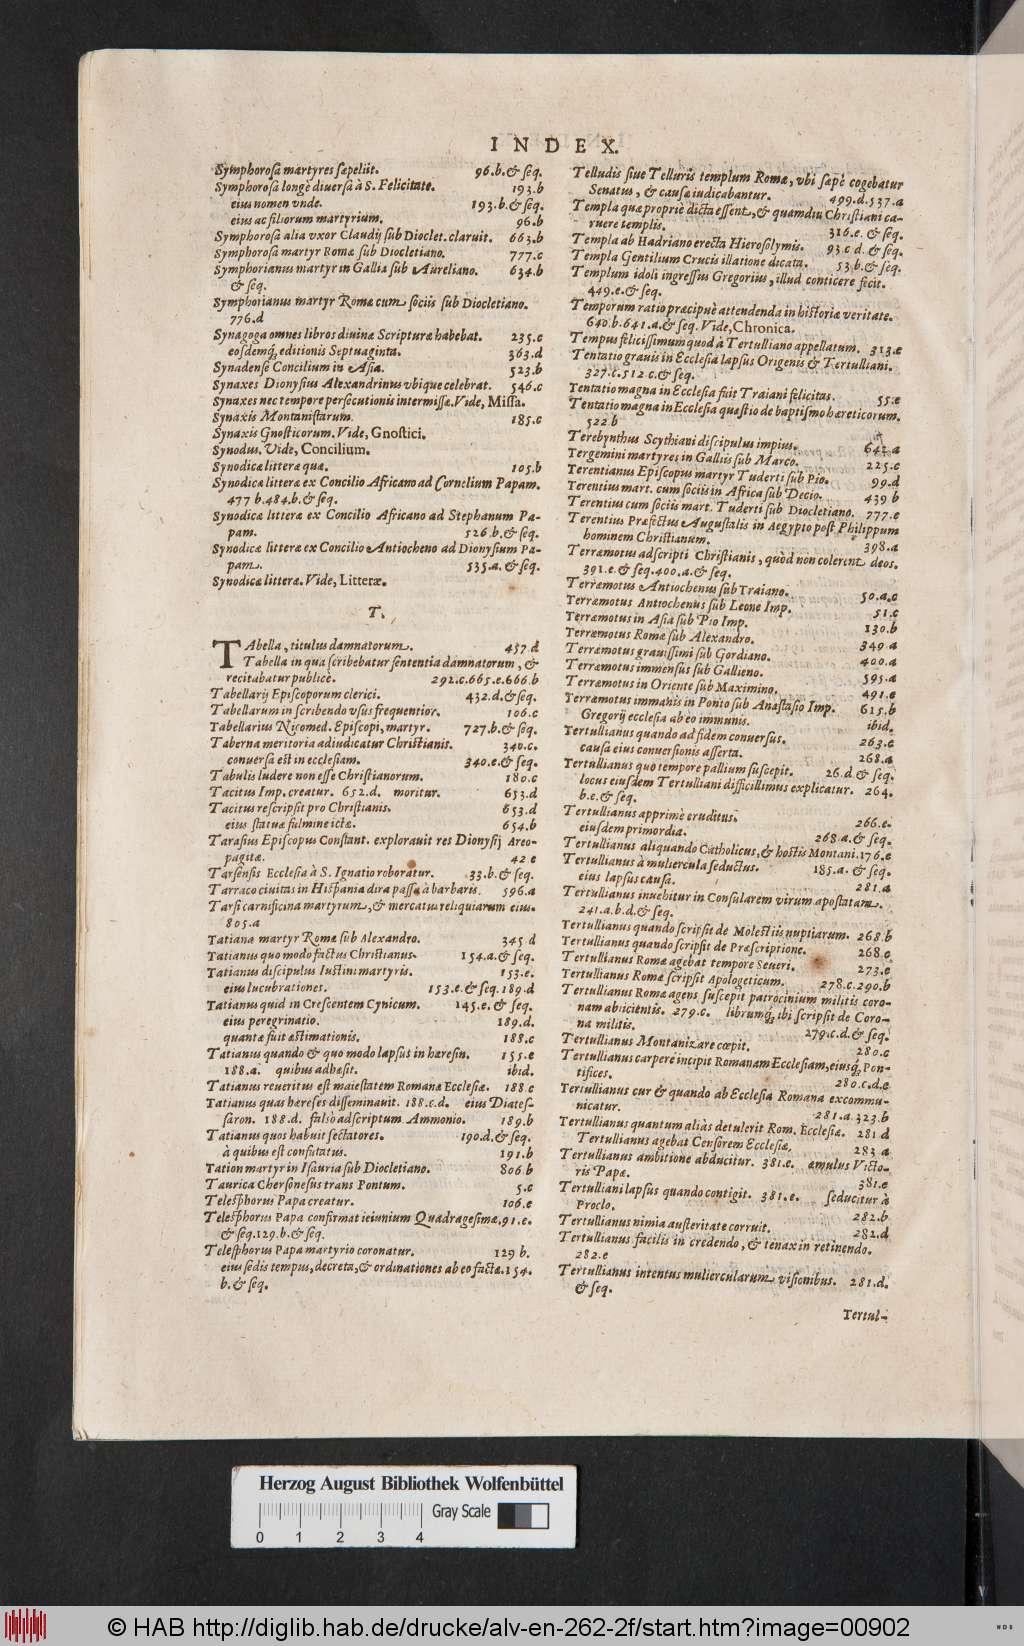 INDEX.
Symphorosa martyres sæpeliit. 96.b.& seq.
Symphorosa longè diuersa à S. Felicitate. 193.b
eius nomen vnde. 193.b.& seq.
eius ac filiorum martyrium. 96.b
Symphorosa alia vxor Claudij sub Dioclet. claruit. 663.b
Symphorosa martyr Romæ sub Diocletiano. 777.c
Symphorianus martyr in Gallia sub Aureliano. 634.b
& seq.
Symphorianus martyr Romæ cum sociis sub Diocletiano.
776.d
Synagoga omnes libros diuinæ Scripturæ habebat. 235.c
eosdemq́; editionis Septuaginta. 363.d
Synadense Concilium in Asia. 523.b
Synaxes Dionysius Alexandrinus vbique celebrat. 546.c
Synaxes nec tempore persecutionis intermissæ. Vide, Missa.
Synaxis Montanistarum. 185.c
Synaxis Gnosticorum. Vide, Gnostici.
Synodus. Vide, Concilium.
Synodicæ litteræ quæ. 105.b
Synodicæ litteræ ex Concilio Africano ad Cornelium Papam.
477 b.484.b.& seq.
Synodicæ litteræ ex Concilio Africano ad Stephanum Pa-
pam. 526.b.& seq.
Synodicæ litteræ ex Concilio Antiocheno ad Dionysium Pa-
pam. 535.a.& seq.
Synodicæ litteræ. Vide, Litteræ.
T.
TAbella, titulus damnatorum. 457.d
Tabella in qua scribebatur sententia damnatorum, &
recitabatur publicè. 292.c.665.e.666.b
Tabellarij Episcoporum clerici. 432.d.& seq.
Tabellarum in scribendo vsus frequentior. 106.c
Tabellarius Nicomed. Episcopi, martyr. 727.b.& seq.
Taberna meritoria adiudicatur Christianis. 340.c.
conuersa est in ecclesiam. 340.e.& seq.
Tabulis ludere non esse Christianorum. 180.c
Tacitus Imp. creatur. 652.d. moritur. 653.d
Tacitus rescripsit pro Christianis. 653.d
eius statuæ fulmine ictæ. 654.b
Tarasius Episcopus Constant. explorauit res Dionysij Areo-
pagitæ. 42 e
Tarsensis Ecclesia à S. Ignatio roboratur. 33.b.& seq.
Tarraco ciuitas in Hispania dira passa à barbaris. 596.a
Tarsi carnificina martyrum, & mercatus reliquiarum eius.
805.a
Tatiana martyr Romæ sub Alexandro. 345 d
Tatianus quo modo factus Christianus. 154.a.& seq.
Tatianus discipulus Iustini martyris. 153.e.
eius lucubrationes. 153.e.& seq.189.d
Tatianus quid in Crescentem Cynicum. 145.e.& seq.
eius peregrinatio. 189.d.
quantæ fuit æstimationis. 188.c
Tatianus quando & quo modo lapsus in hæresin. 155.e
188.a. quibus adhæsit. ibid.
Tatianus reueritus est maiestatem Romanæ Ecclesiæ. 188 c
Tatianus quas hæreses disseminauit. 188.c.d. eius Diates-
saron. 188.d. falsò adscriptum Ammonio. 189.b
Tatianus quos habuit sectatores. 190.d.& seq.
à quibus est confutatus. 191.b
Tation martyr in Isauria sub Diocletiano. 806.b
Taurica Chersonesus trans Pontum. 5.c
Telesphorus Papa creatur. 106.e
Telesphorus Papa confirmat ieiunium Quadragesimæ.91.e.
& seq.129.b.& seq.
Telesphorus Papa martyrio coronatur. 129 b.
eius sedis tempus, decreta, & ordinationes ab eo factæ.154.
b.& seq.
Telludis siue Telluris templum Romæ, vbi sæpè cogebatur
Senatus, & causæ iudicabantur. 499.d.537.a
Templa quæ propriè dicta essent, & quamdiu Christiani ca-
ruere templis. 316.e.& seq.
Templa ab Hadriano erecta Hierosolymis. 93 c d.& seq.
Templa Gentilium Crucis illatione dicata. 53.b.& seq.
Templum idoli ingressus Gregorius, illud conticere fecit.
449.e.& seq.
Temporum ratio præcipuè attendenda in historiæ veritate.
640.b.641.a.& seq. Vide, Chronica.
Tempus felicissimum quod à Tertulliano appellatum. 313.e
Tentatio grauis in Ecclesia lapsus Origenis & Tertulliani.
327.c.512 c.& seq.
Tentatio magna in Ecclesia fuit Traiani felicitas. 55.e
Tentatio magna in Ecclesia quæstio de baptismo hæreticorum.
522.b
Terebynthus Scythiani discipulus impius. 642 a
Tergemini martyres in Galliis sub Marco. 225.c
Terentianus Episcopus martyr Tuderti sub Pio. 99.d
Terentius mart. cum sociis in Africa sub Decio. 439 b
Terentius cum sociis mart. Tuderti sub Diocletiano. 777.e
Terentius Præfectus Augustalis in Aegypto post Philippum
hominem Christianum. 398.a
Terræmotus adscripti Christianis, quòd non colerent deos.
391.e.& seq.400.a.& seq.
Terræmotus Antiochenus sub Traiano. 50.a.c
Terræmotus Antiochenus sub Leone Imp. 51.c
Terræmotus in Asia sub Pio Imp. 130.b
Terræmotus Romæ sub Alexandro. 349 a
Terræmotus grauissimi sub Gordiano. 400.a
Terræmotus immensus sub Gallieno. 595.a
Terræmotus in Oriente sub Maximino. 491.e
Terræmotus immanis in Ponto sub Anastasio Imp. 615.b
Gregorij ecclesia ab eo immunis. ibid.
Tertullianus quando ad fidem conuersus. 263.c
causa eius conuersionis asserta. 268.a
Tertullianus quo tempore pallium suscepit. 26.d & seq.
locus eiusdem Tertulliani difficillimus explicatur. 264.
b.e.& seq.
Tertullianus apprimè eruditus. 266.e.
eiusdem primordia. 268.a.& seq.
Tertullianus aliquando Catholicus, & hostis Montani.176.e
Tertullianus à muliercula seductus. 185.a.& seq.
eius lapsus causa. 281.a
Tertullianus inuehitur in Consularem virum apostatam.
241.a.b.d.& seq.
Tertullianus quando scripsit de Molestiis nuptiarum. 268.b
Tertullianus quando scripsit de Præscriptione. 268.c
Tertullianus Romæ agebat tempore Seueri. 273.e
Tertullianus Romæ scripsit Apologeticum. 278.c.290.b
Tertullianus Romæ agens suscepit patrocinium militis coro-
nam abiicientis. 279.c. librumq́; ibi scripsit de Coro-
na militis. 279.c.d.& seq.
Tertullianus Montanizare cœpit. 280.c
Tertullianus carpere incipit Romanam Ecclesiam, eiusq́; Pon-
tifices. 280.c.d.e
Tertullianus cur & quando ab Ecclesia Romana excommu-
nicatur. 281.a.323.b
Tertullianus quantum aliàs detulerit Rom. Ecclesiæ. 281 d
Tertullianus agebat Censorem Ecclesiæ. 283 a
Tertullianus ambitione abducitur. 381.e. æmulus Victo-
ris Papæ. 381.e
Tertulliani lapsus quando contigit. 381.e. seducitur à
Proclo. 282.b
Tertullianus nimia austeritate corruit. 282.d
Tertullianus facilis in credendo, & tenax in retinendo.
282.e
Tertullianus intentus muliercularum visionibus. 281.d.
& seq.
Tertul-
Herzog August Bibliothek Wolfenbüttel
Gray Scale
0 1 2 3 4
© HAB http://diglib.hab.de/drucke/alv-en-262-2f/start.htm?image=00902